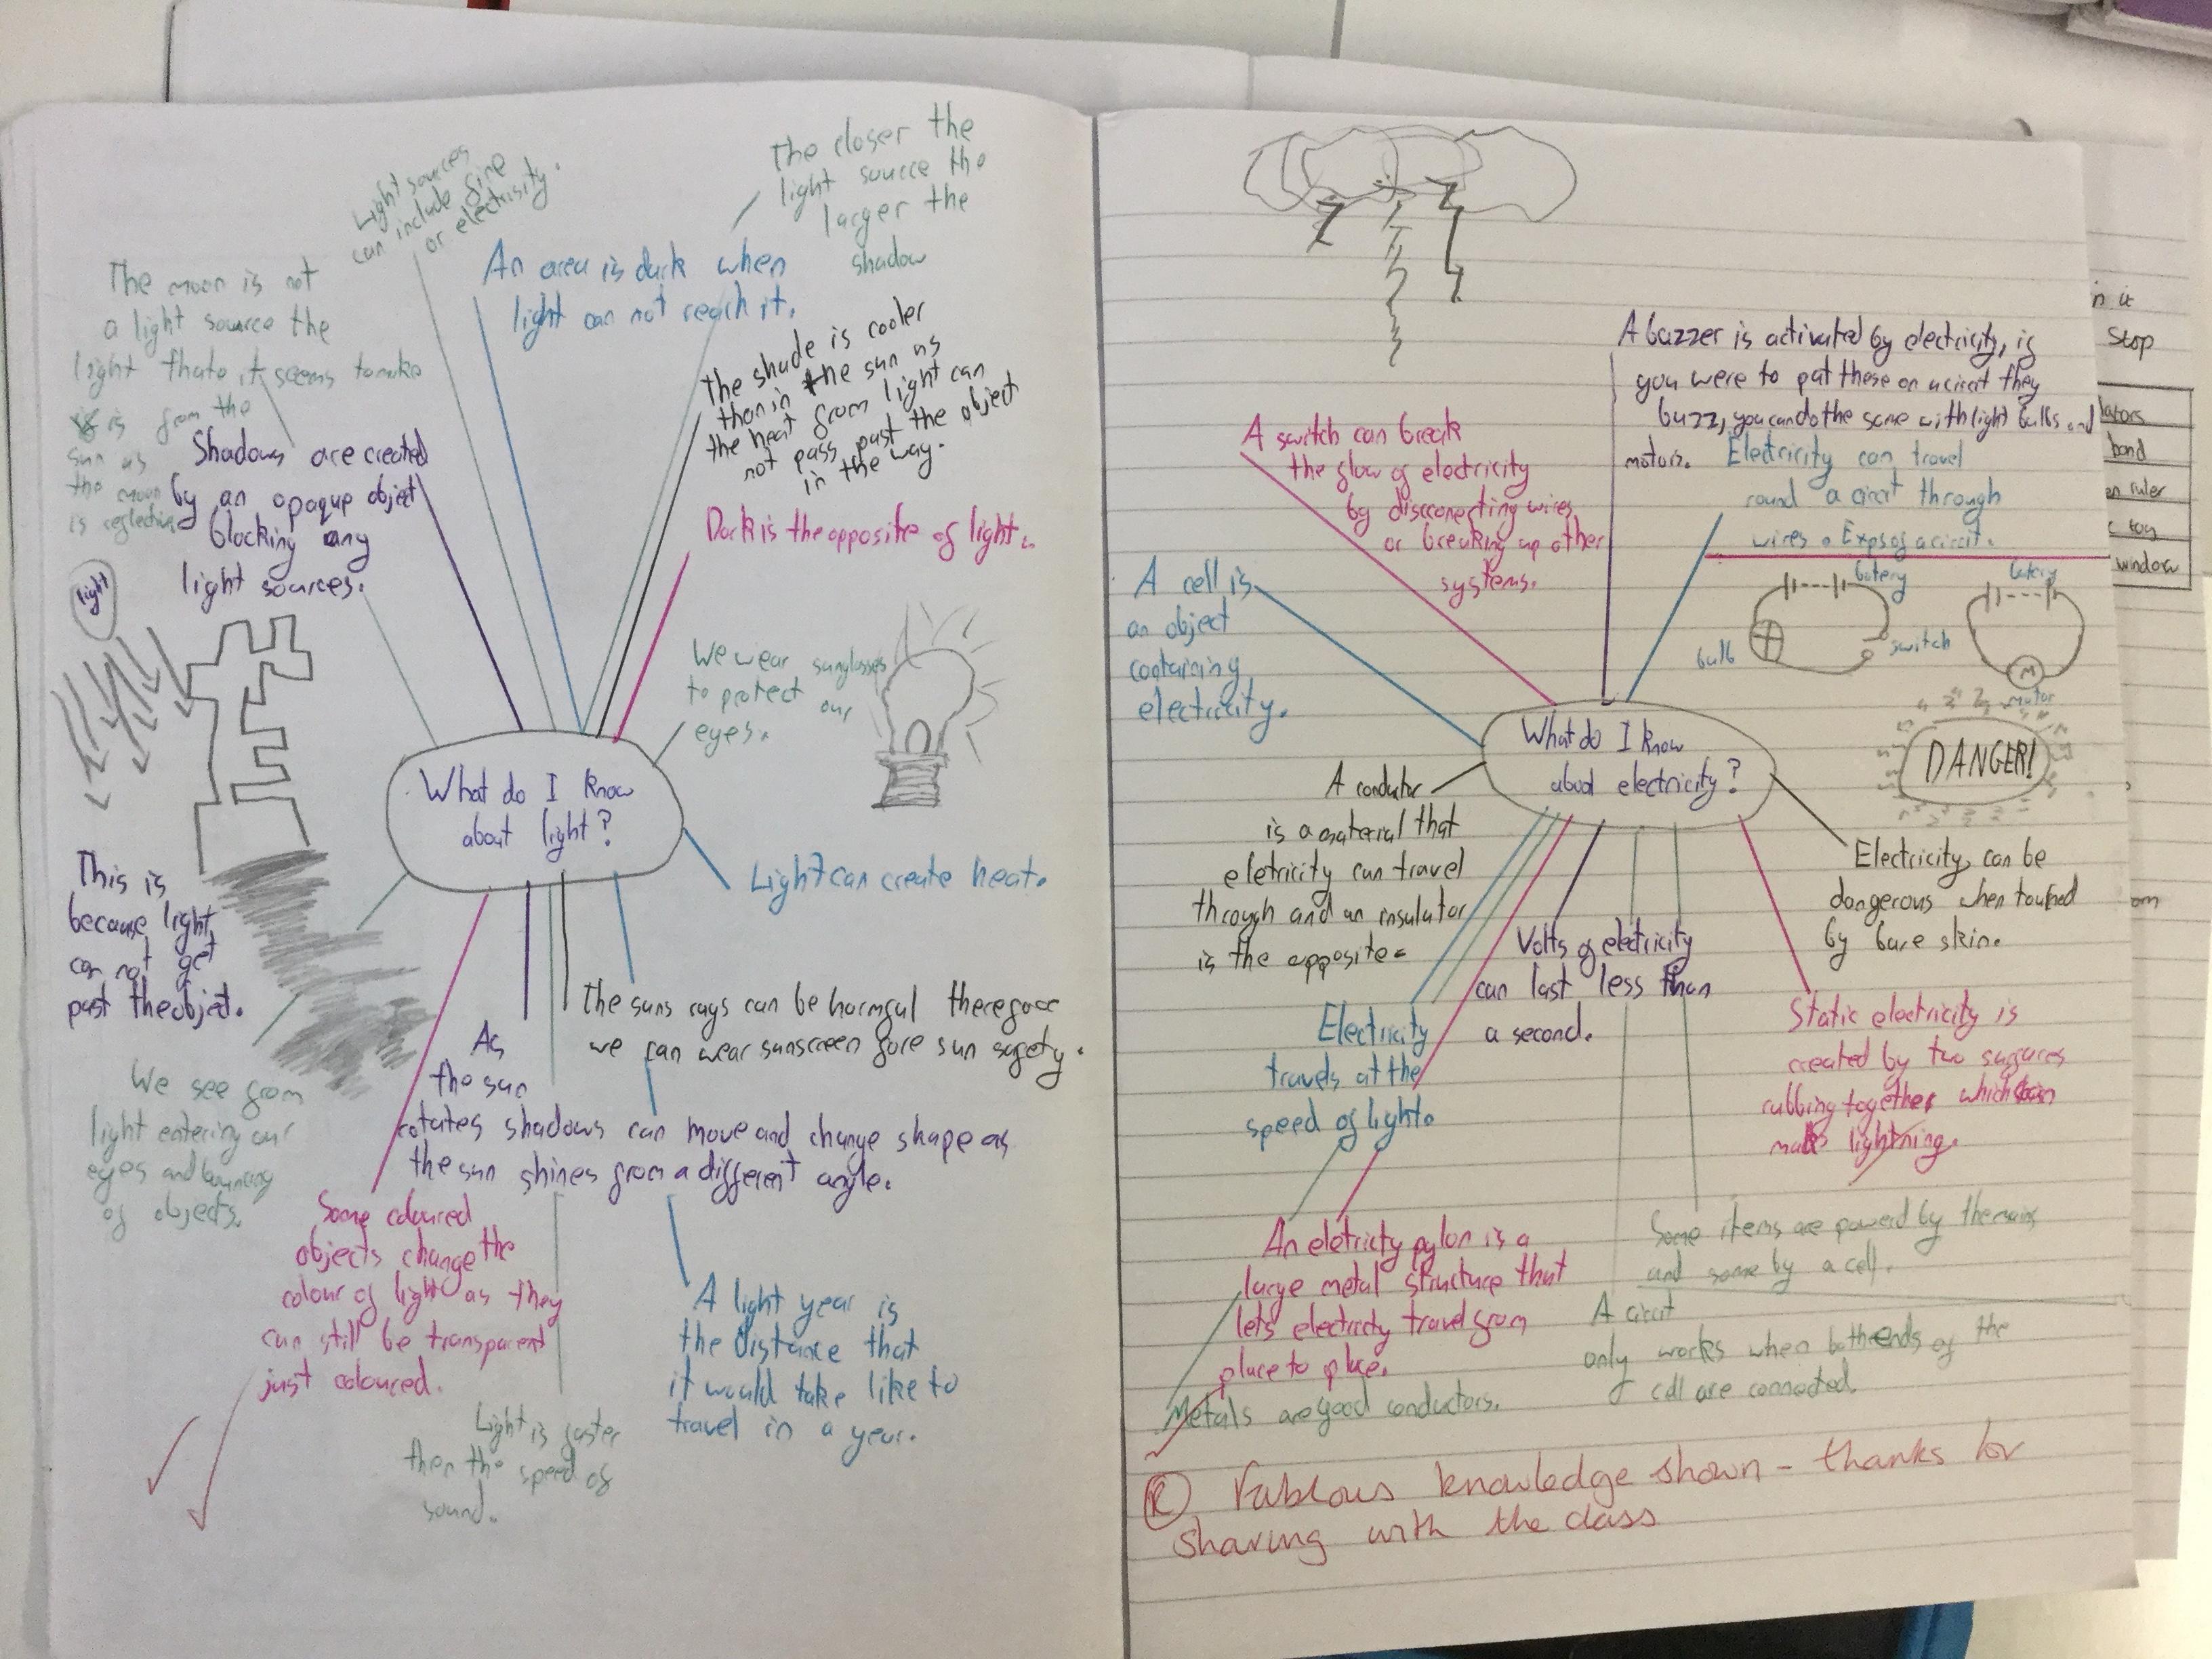 Light sources
can include fire
or electrisity.
The closer the
light source the
larger the
shadow
An area is dark when
light can not reach it.
The moon is not
a light source the
light thato it seems to make
is from the
sun as
the moon
is reflecting
The shade is cooler
than in the sun as
the heat from light can
not pass past the object
in the way.
Shadows are created
by an opaque object
blocking any
light sources.
Dark is the opposite of light.
light
We wear sunglasses
to protect our
eyes.
What do I know
about light?
Light can create heat.
This is
because light
can not get
past the objet.
The suns rays can be harmful therefore
we can wear sunscreen fore sun safety.
As
the sun
rotates shadows can move and change shape as
the sun shines from a different angle.
We see from
light entering our
eyes and bouncing
of objects.
Some coloured
objects change the
colour of light as they
can still be transparent
just coloured.
A light year is
the distance that
it would take like to
travel in a year.
Light is faster
then the speed of
sound.
A buzzer is activated by electricity, if
you were to put these on a circit they
buzz, you can do the same with light bulbs and
motors.
A switch can break
the flow of electricity
by disconnecting wires
or breaking up other
systems.
Electricity can travel
round a circit through
wires. Exps of a circit.
batery
batery
bulb
switch
M
motor
A cell is
an object
containing
electricity.
What do I know
about electricity?
DANGER!
A conductor
is a material that
eletricity can travel
through and an insulator
is the opposite.
Electricity can be
dangerous when touched
by bare skin.
Volts of electricity
can last less than
a second.
Electricity
travels at the
speed of light.
Static electricity is
created by two surfaces
rubbing together which
makes lightning.
An eletricty pylon is a
large metal structure that
lets electricty travel from
place to place.
Some items are powerd by the mains
and some by a cell.
A circit
only works when both ends of the
cell are connected.
Metals are good conductors.
R Fablous knowledge shown - thanks for
sharing with the class
Stop
band
ruler
toy
window